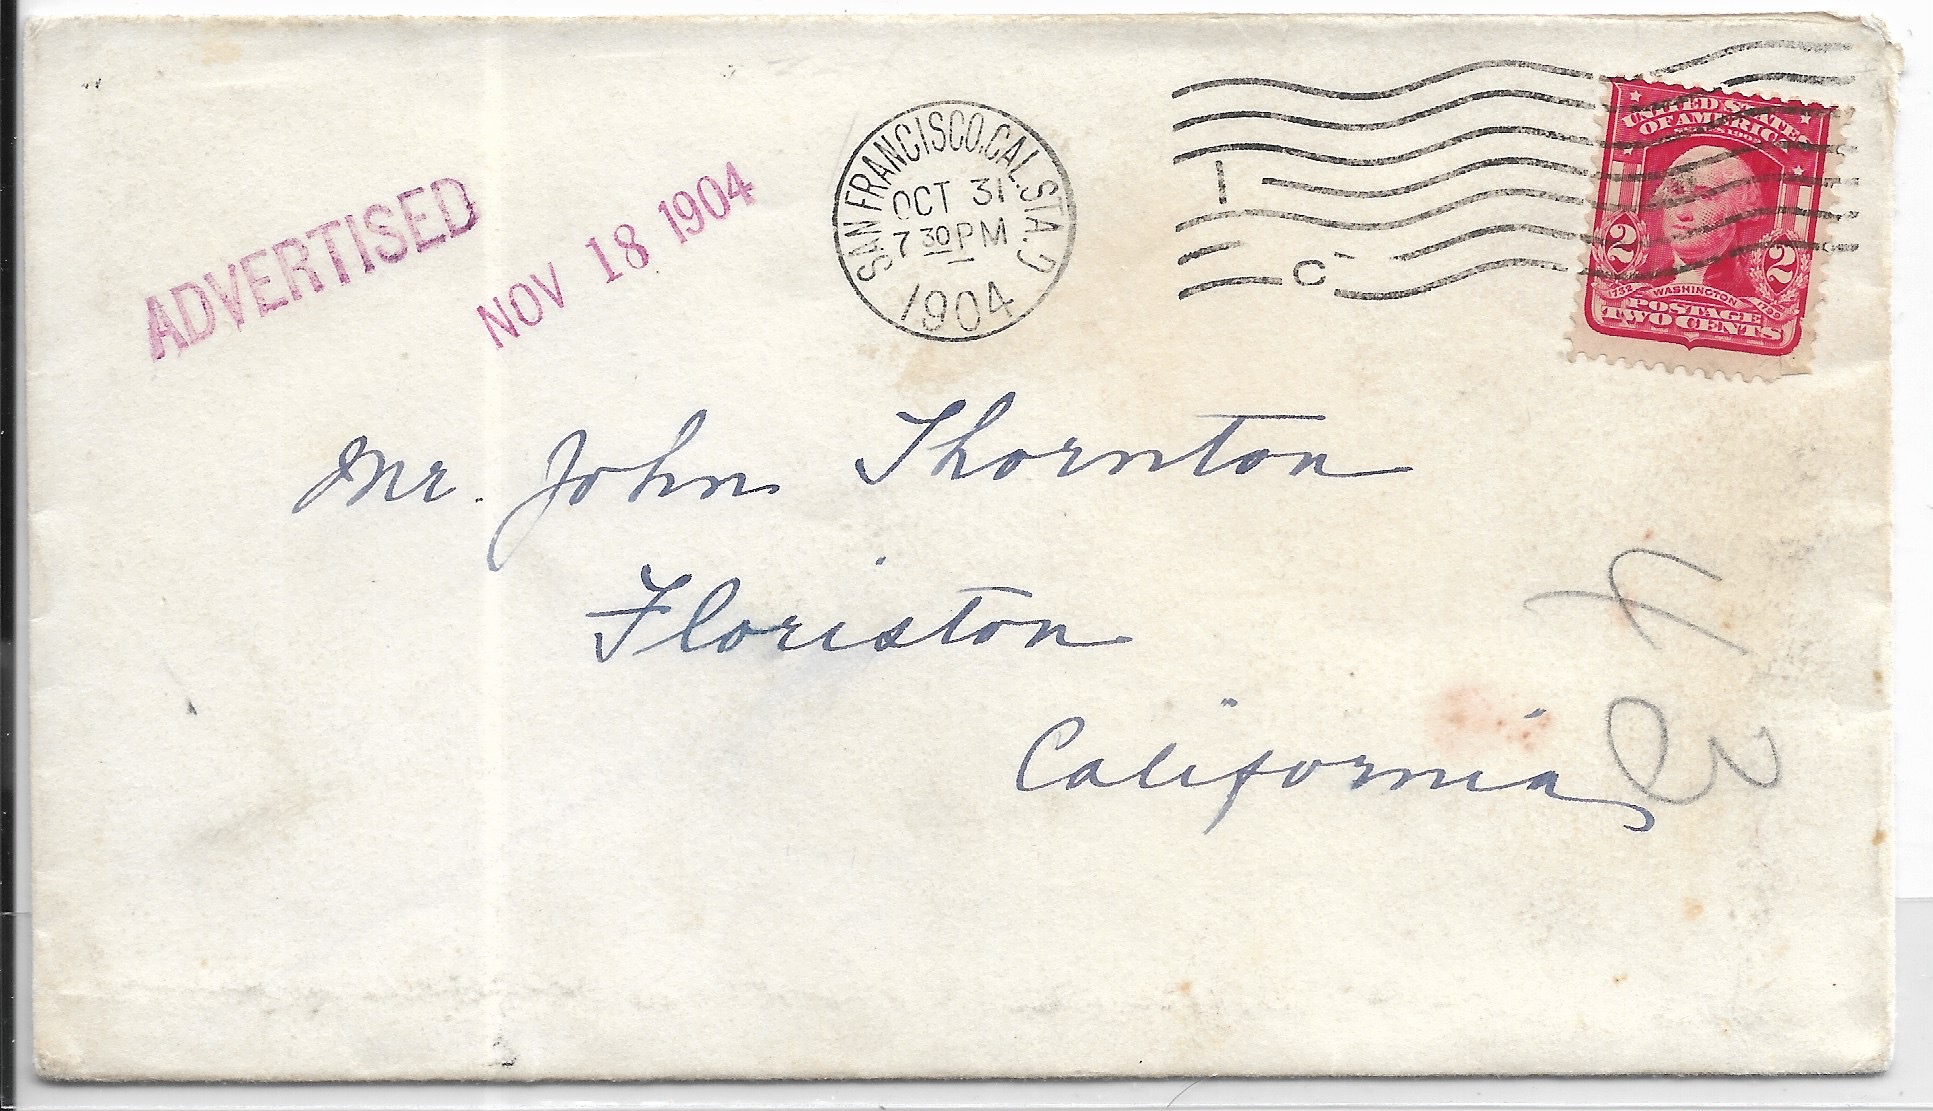 ADVERTISED
NOV 18 1904
SAN FRANCISCO, CAL. STA. J
OCT 31
7 30 PM
1904
1
C
UNITED STATES
OF AMERICA
2 2
1732 WASHINGTON 1799
POSTAGE
TWO CENTS
Mr. John Thornton
Floriston
California